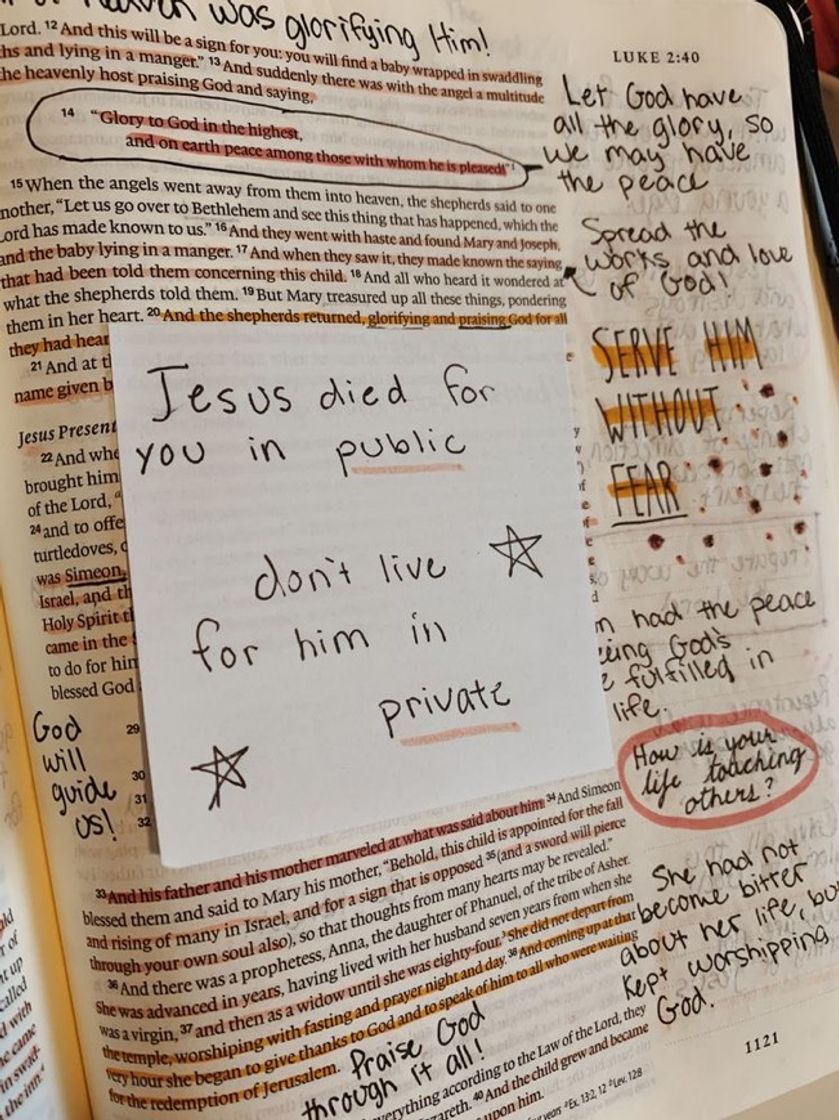 Heaven was glorifying Him!
LUKE 2:40
Lord. 12 And this will be a sign for you: you will find a baby wrapped in swaddling
ths and lying in a manger.” 13 And suddenly there was with the angel a multitude
he heavenly host praising God and saying,
14 “Glory to God in the highest,
and on earth peace among those with whom he is pleased!”
Let God have
all the glory, so
we may have
the peace
15 When the angels went away from them into heaven, the shepherds said to one
nother, “Let us go over to Bethlehem and see this thing that has happened, which the
Lord has made known to us.” 16 And they went with haste and found Mary and Joseph,
and the baby lying in a manger. 17 And when they saw it, they made known the saying
that had been told them concerning this child. 18 And all who heard it wondered at
what the shepherds told them. 19 But Mary treasured up all these things, pondering
them in her heart. 20 And the shepherds returned, glorifying and praising God for all
they had hear
Spread the
works and love
of God!
21 And at t
name given b
SERVE HIM
WITHOUT
FEAR
Jesus Present
22 And whe
brought him
of the Lord, “
24 and to offe
turtledoves, o
was Simeon,
Israel, and th
Holy Spirit t
came in the
to do for him
blessed God
Jesus died for
you in public
don't live
for him in
private
n had the peace
eing God's
e fulfilled in
life.
How is your
life teaching
others?
God
will
guide
us!
29
30
31
32
33 And his father and his mother marveled at what was said about him. 34 And Simeon
blessed them and said to Mary his mother, “Behold, this child is appointed for the fall
and rising of many in Israel, and for a sign that is opposed 35 (and a sword will pierce
through your own soul also), so that thoughts from many hearts may be revealed.”
36 And there was a prophetess, Anna, the daughter of Phanuel, of the tribe of Asher.
She was advanced in years, having lived with her husband seven years from when she
was a virgin, 37 and then as a widow until she was eighty-four. She did not depart from
the temple, worshiping with fasting and prayer night and day. 38 And coming up at that
very hour she began to give thanks to God and to speak of him to all who were waiting
for the redemption of Jerusalem.
Praise God
through it all!
She had not
become bitter
about her life, bu
kept worshipping
God.
everything according to the Law of the Lord, they
zareth. 40 And the child grew and became
upon him.
Ex. 13:2, 12 Lev. 12:8
1121